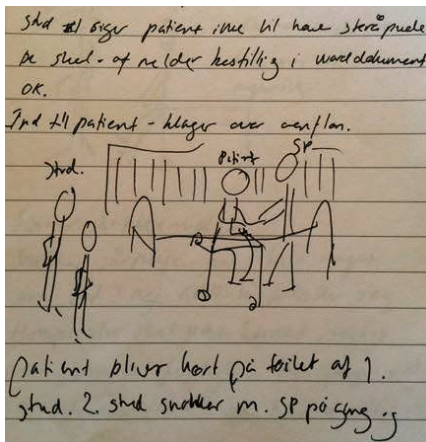 Stud 1 siger patient ikke vil have skråpude
be stud. afmelder bestilling i
OK.
Ind til patient - klager over venflon.
Stud. Patient SP
patient bliver kørt på toilet af 1.
stud. 2. stud snakker m. SP på gang